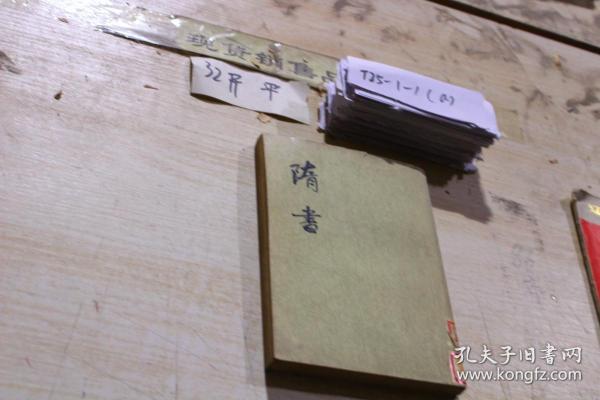 现货銷售
32开 平
T25-1-1(0)
隋書
孔夫子旧書网
www.kongfz.com